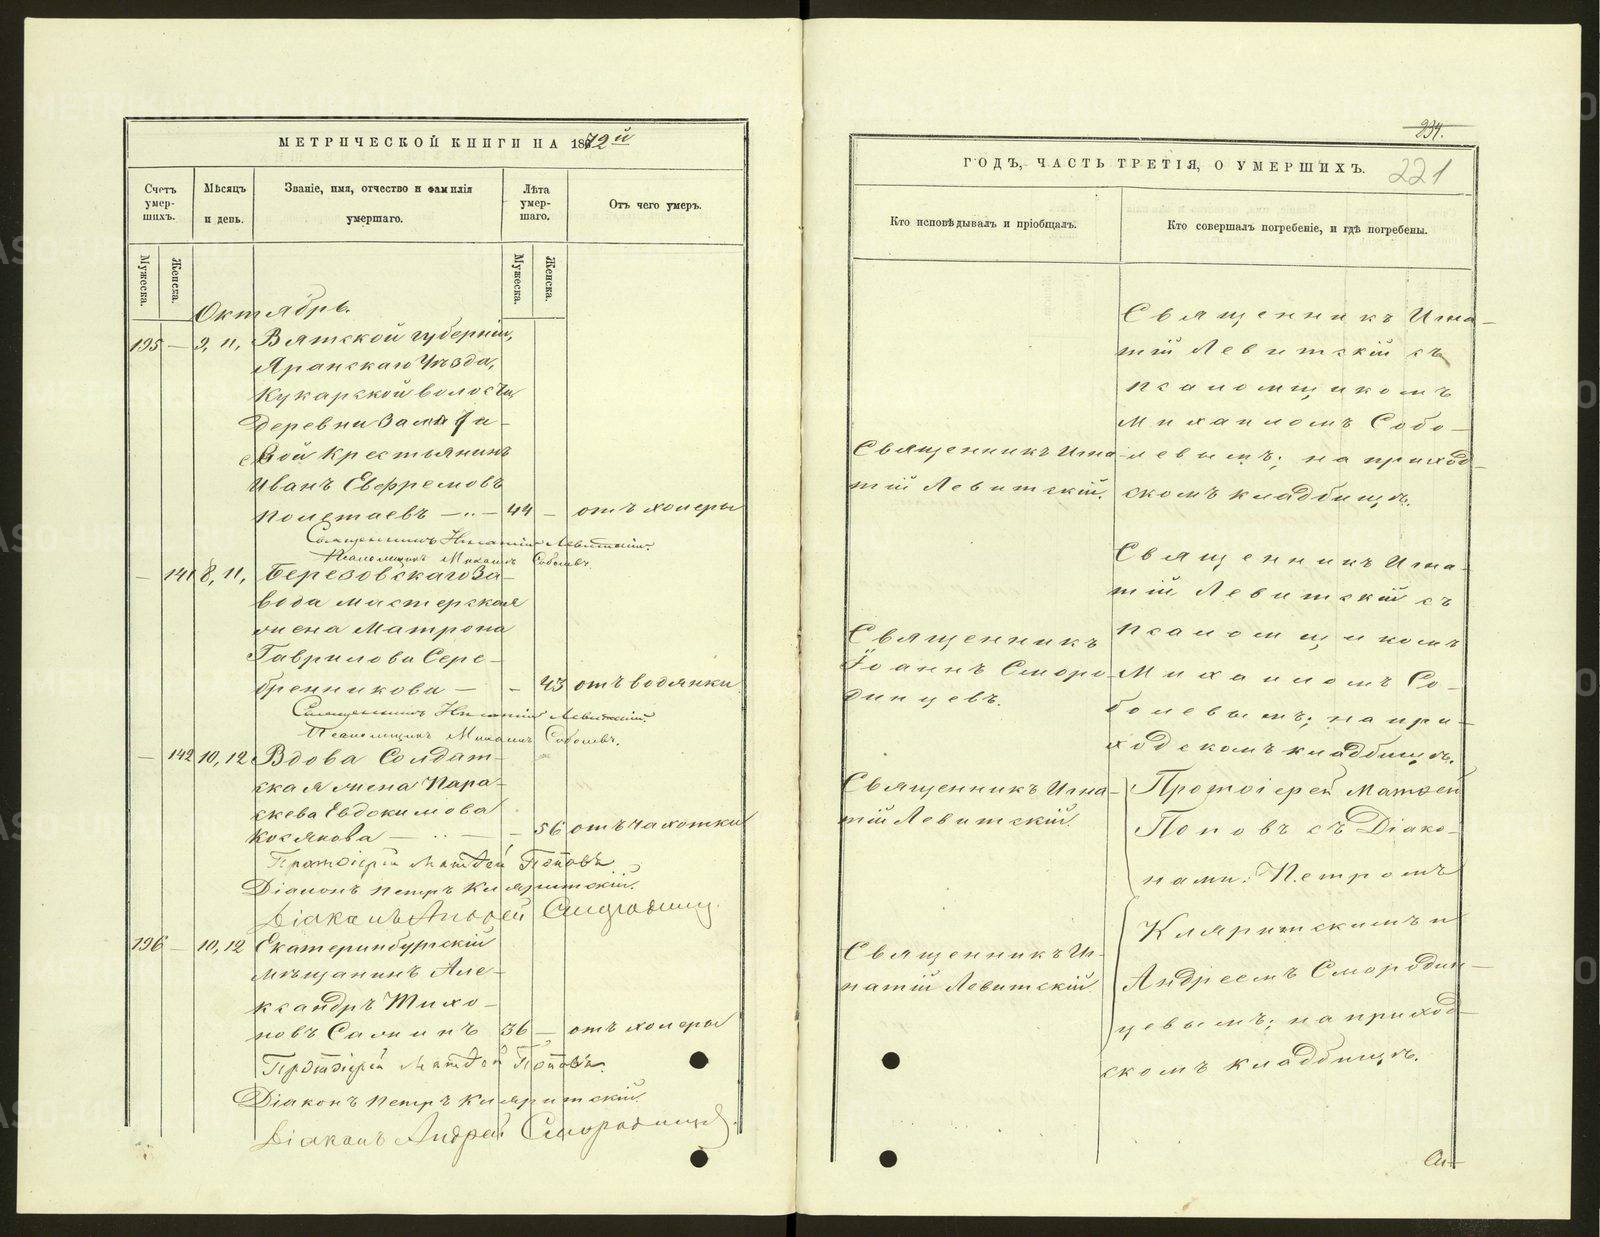 МЕТРИЧЕСКОЙ КНИГИ НА 1872й
Счетъ умер-шихъ.
Мѣсяцъ и день.
Званіе, имя, отчество и фамилія умершаго.
Лѣта умер-шаго.
Отъ чего умеръ.
Мужеска.
Женска.
Мужеска.
Женска.
Октябрь.
195 — 9, 11, Вятской губерніи,
Яранскаго Уѣзда,
Кукарской волости
деревни
Крестьянинъ
Иванъ Евфремовъ
Полетаевъ — 44 — отъ холеры
Священникъ Игнатій Левитскій.
Псаломщикъ Михаилъ Соболевъ.
— 141 8, 11, Березовскаго За-
вода мастерская
жена Матрона
Гаврилова Сере-
бренникова — — 43 отъ водянки
Священникъ Игнатій Левитскій.
Псаломщикъ Михаилъ Соболевъ.
— 142 10, 12 Вдова Солдат-
ская жена Пара-
скева Евдокимова
Козлянова — — 56 отъ чахотки
Протоіерей Матѳей Поповъ
Діаконъ Петръ Кляритскій.
Діаконъ Андрей Смородинц.
196 — 10, 12 Екатеринбургскій
мѣщанинъ Але-
ксандръ Тихо-
новъ 36 — отъ холеры
Протоіерей Матѳей Поповъ.
Діаконъ Петръ Кляритскій
Діаконъ Андрей Смородинц.
234.
ГОДЪ, ЧАСТЬ ТРЕТІЯ, О УМЕРШИХЪ.
221
Кто исповѣдывалъ и пріобщалъ.
Кто совершалъ погребеніе, и гдѣ погребены.
Священникъ Игна-
тій Левитскій.
Священникъ Игна-
тій Левитскій съ
псаломщикомъ
Михаиломъ Собо-
левымъ; на приход-
скомъ кладбищѣ.
Священникъ
Іоаннъ Сморо-
динцевъ.
Священникъ Игна-
тій Левитскій съ
псаломщикомъ
Михаиломъ Со-
болевымъ; на при-
ходскомъ кладбищѣ.
Священникъ Игна-
тій Левитскій
Священникъ Иг-
натій Левитскій
Протоіерей Матѳей
Поповъ съ Діако-
нами: Петромъ
Кляритскимъ и
Андреемъ Смородин-
цевымъ; на приход-
скомъ кладбищѣ.